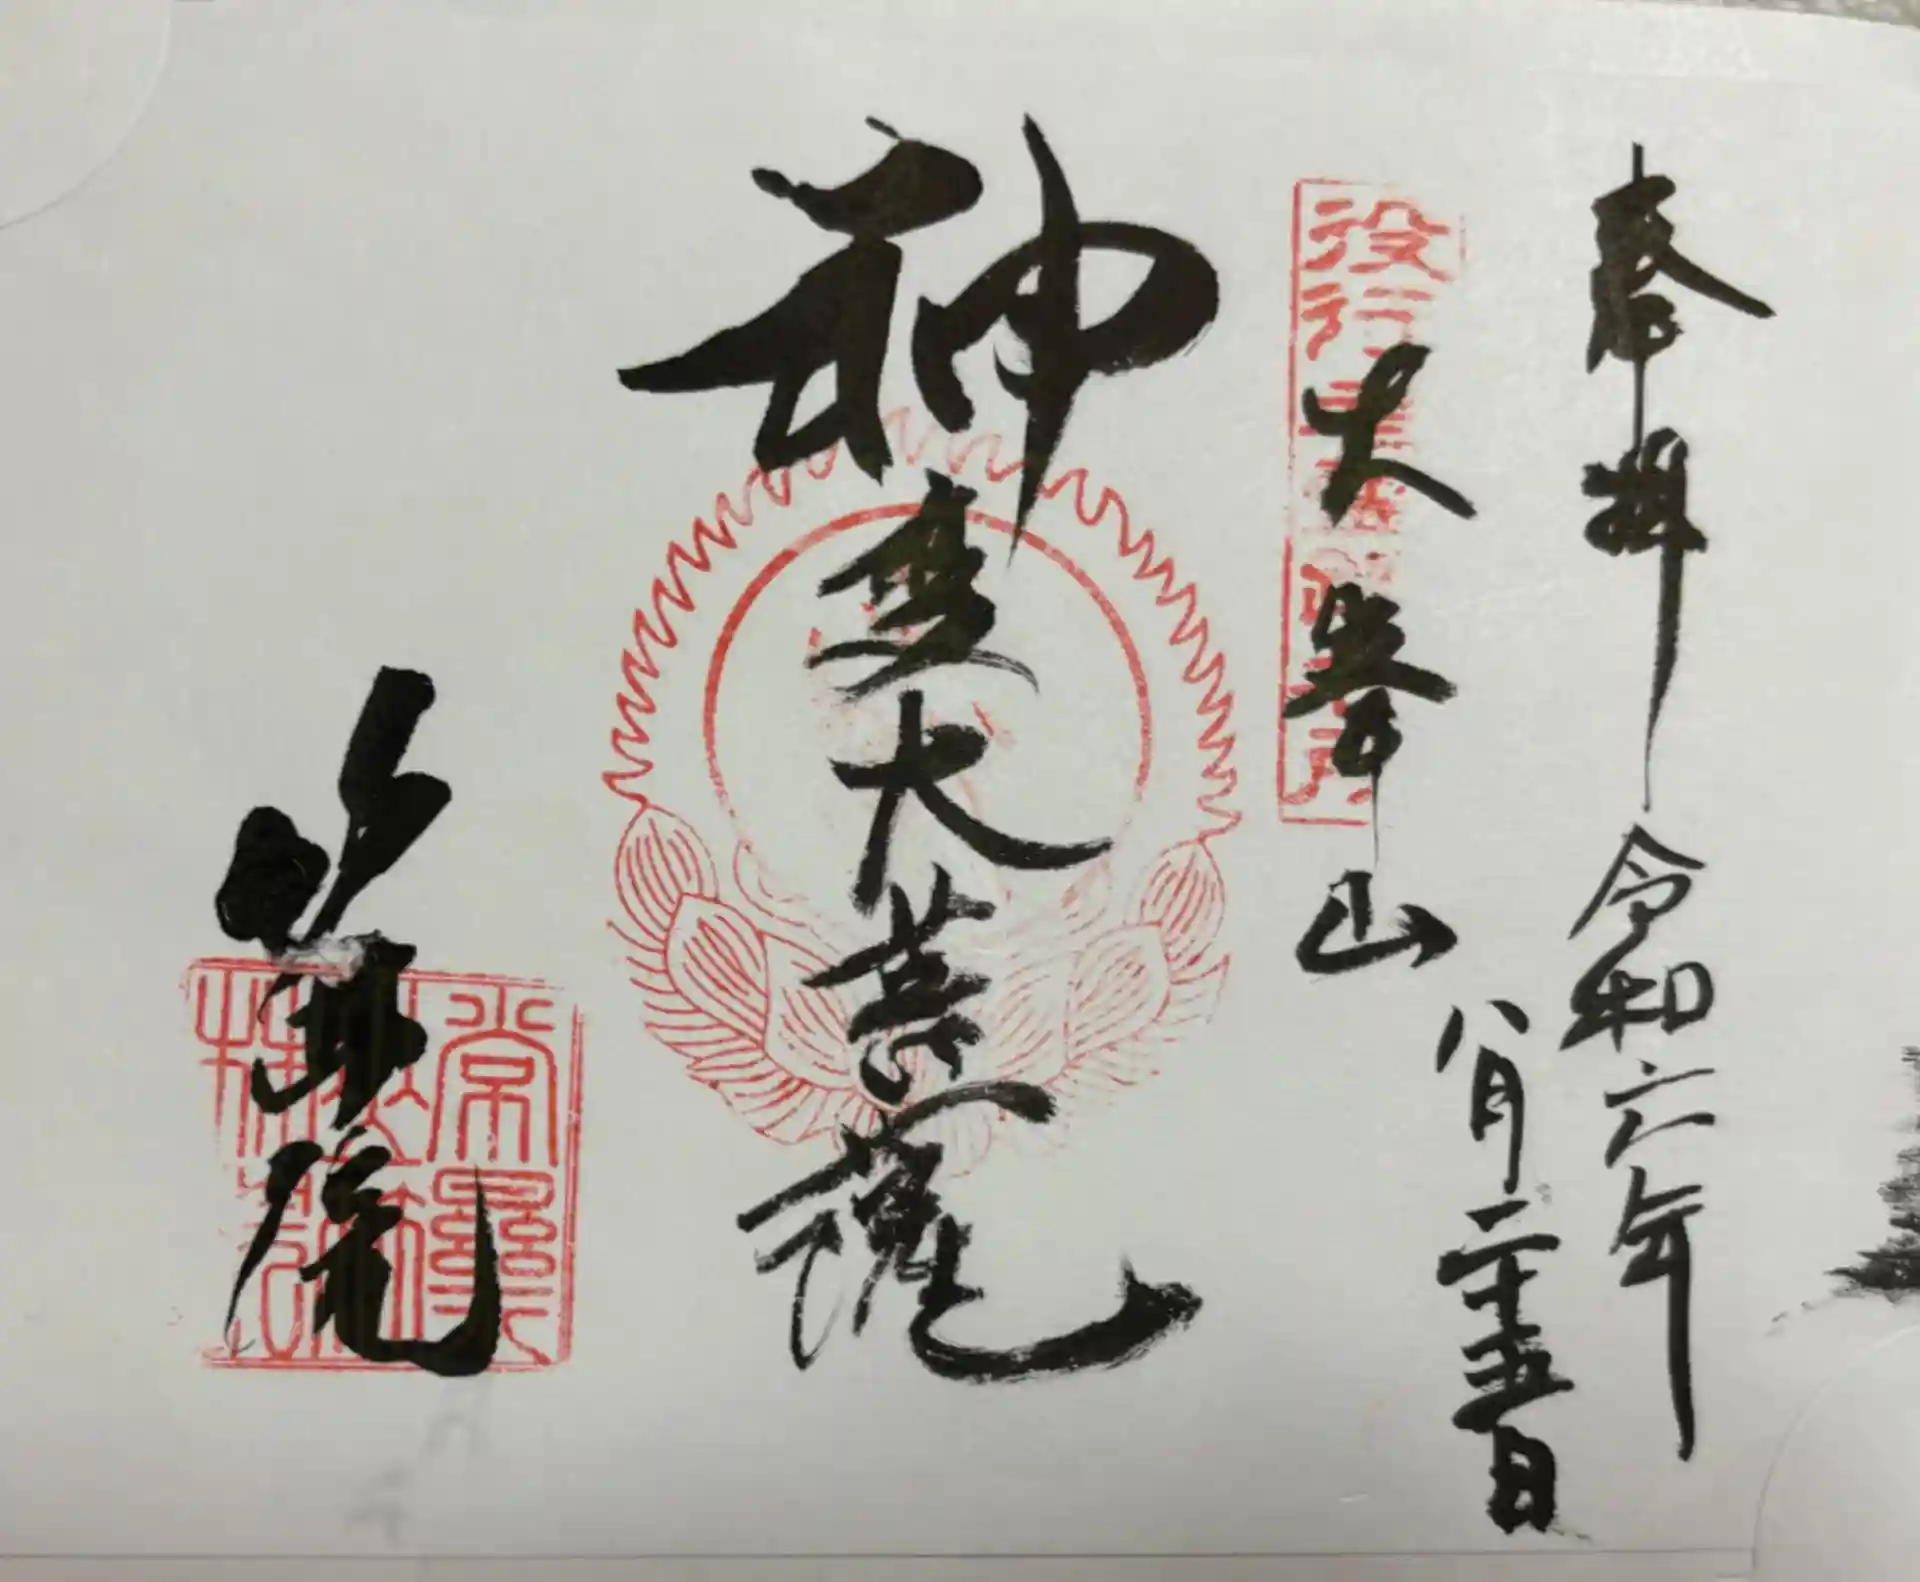 奉拝 令和六年
八月二十五日
役行者霊蹟札所
大峯山
神変大菩薩
院